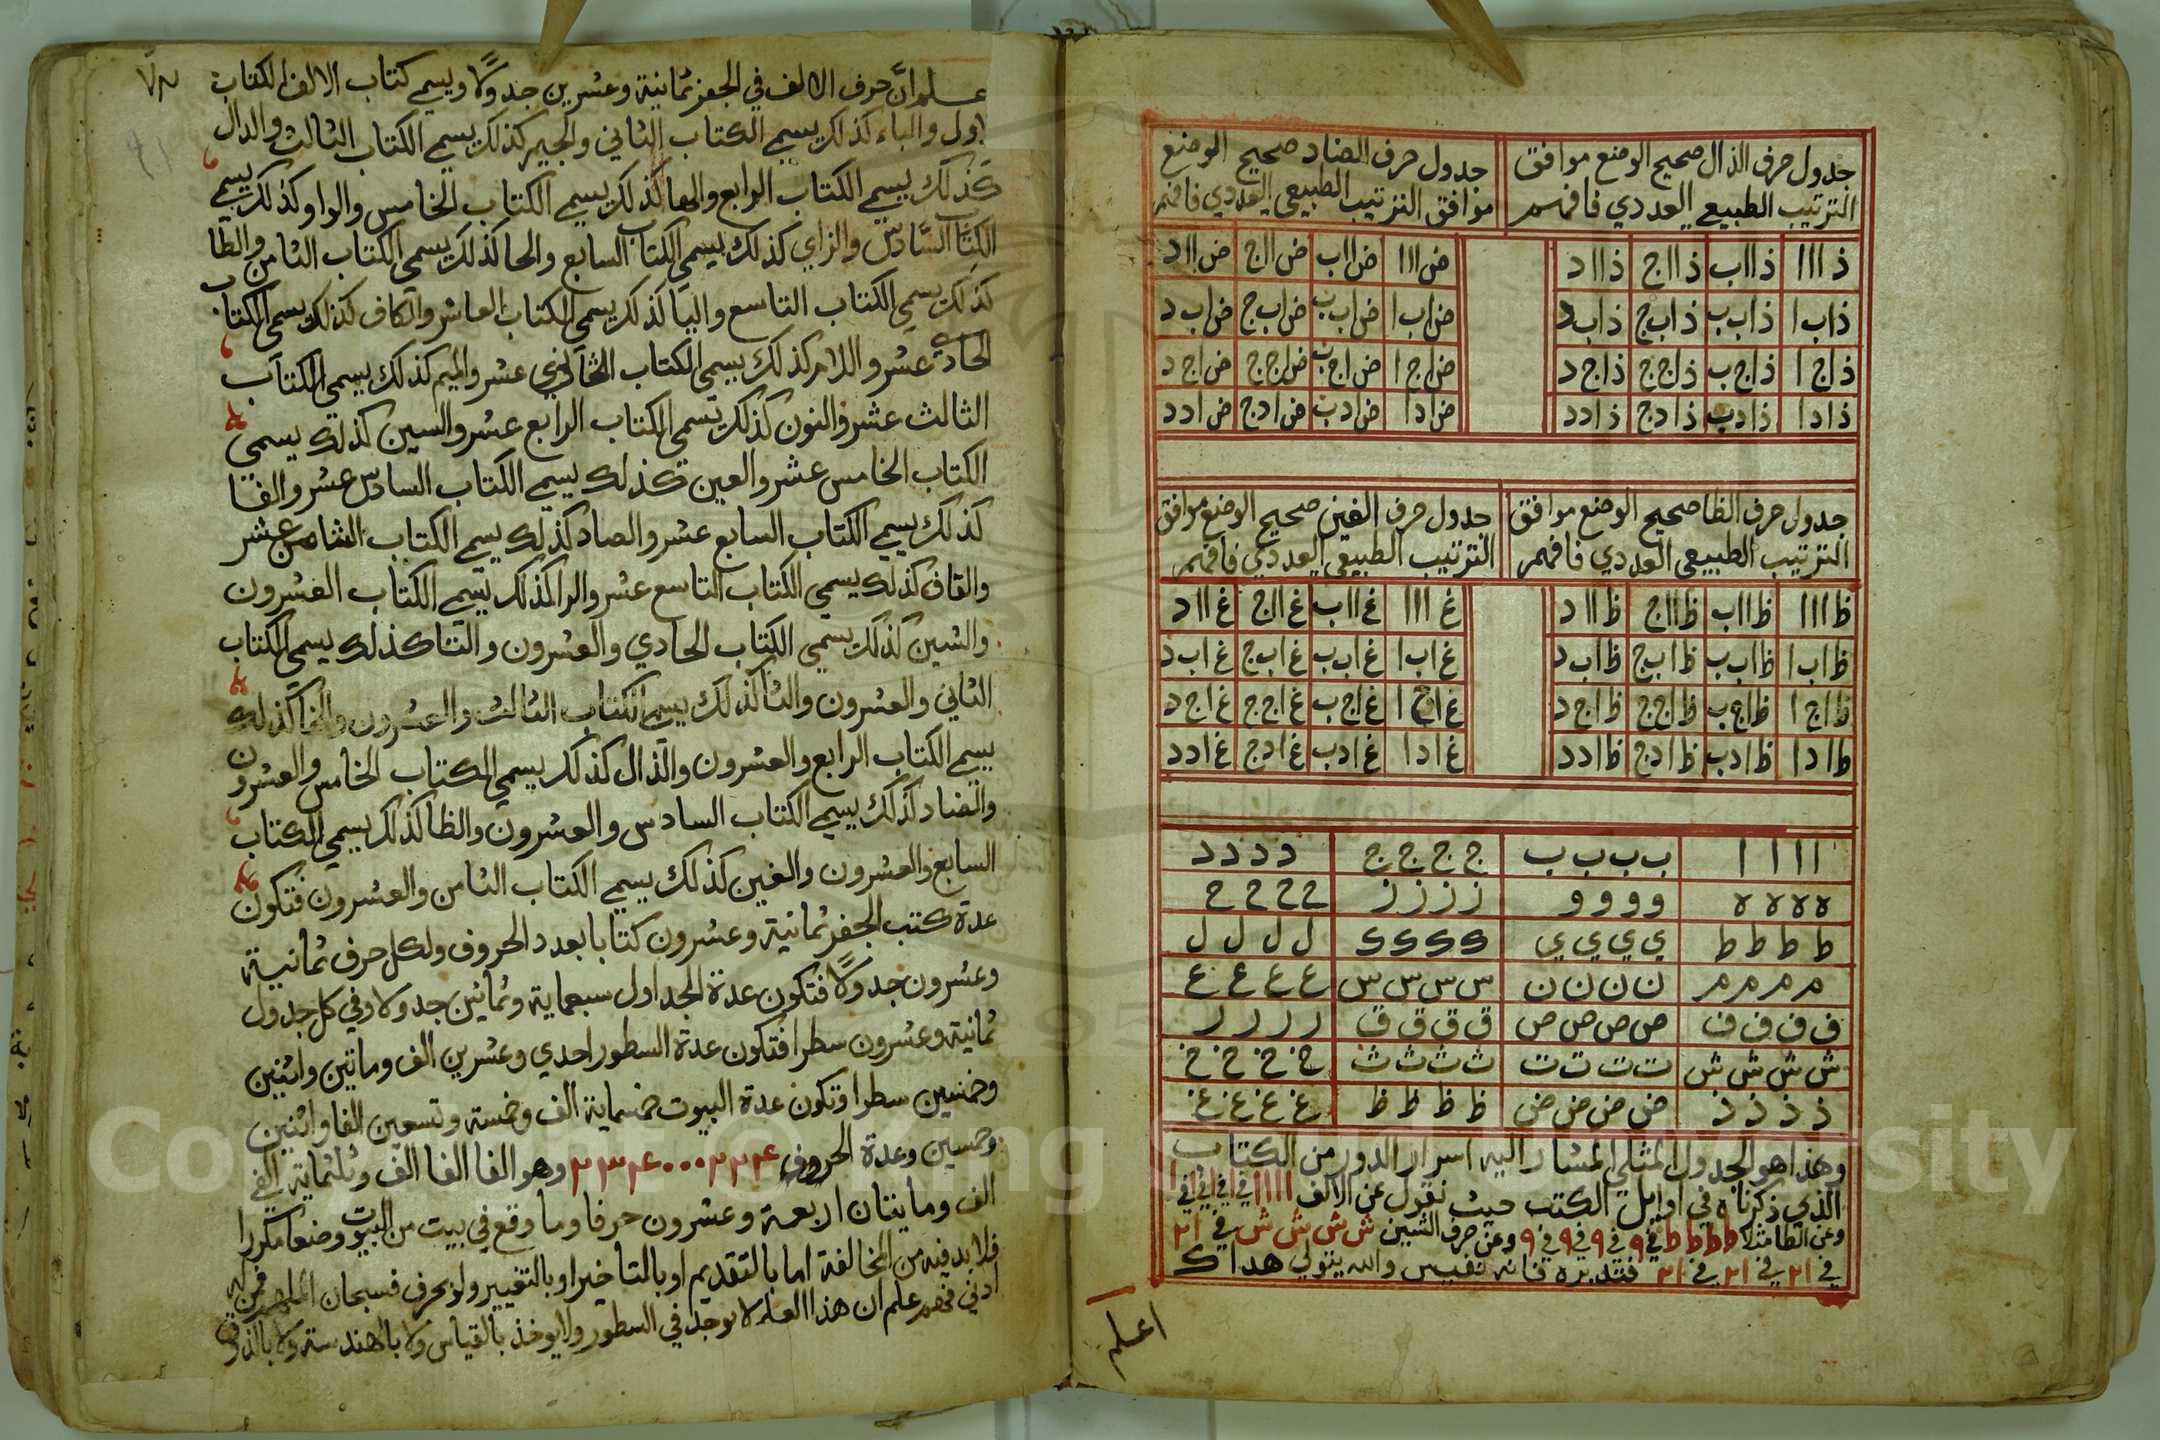 جدول حرف الذال صحيح الوضع موافق
الترتيب الطبيعي العددي فافهم
جدول حرف الضاد صحيح الوضع
موافق الترتيب الطبيعي العددي فافهم
ذ ا ا ا ذ ا ا ب ذ ا ا ج ذ ا ا د
ذ ا ب ا ذ ا ب ب ذ ا ب ج ذ ا ب د
ذ ا ج ا ذ ا ج ب ذ ا ج ج ذ ا ج د
ذ ا د ا ذ ا د ب ذ ا د ج ذ ا د د
ض ا ا ا ض ا ا ب ض ا ا ج ض ا ا د
ض ا ب ا ض ا ب ب ض ا ب ج ض ا ب د
ض ا ج ا ض ا ج ب ض ا ج ج ض ا ج د
ض ا د ا ض ا د ب ض ا د ج ض ا د د
جدول حرف الظا صحيح الوضع موافق
الترتيب الطبيعي العددي فافهم
جدول حرف الغين صحيح الوضع موافق
الترتيب الطبيعي العددي فافهم
ظ ا ا ا ظ ا ا ب ظ ا ا ج ظ ا ا د
ظ ا ب ا ظ ا ب ب ظ ا ب ج ظ ا ب د
ظ ا ج ا ظ ا ج ب ظ ا ج ج ظ ا ج د
ظ ا د ا ظ ا د ب ظ ا د ج ظ ا د د
غ ا ا ا غ ا ا ب غ ا ا ج غ ا ا د
غ ا ب ا غ ا ب ب غ ا ب ج غ ا ب د
غ ا ج ا غ ا ج ب غ ا ج ج غ ا ج د
غ ا د ا غ ا د ب غ ا د ج غ ا د د
ا ا ا ا ب ب ب ب ج ج ج ج د د د د
ه ه ه ه و و و و ز ز ز ز ح ح ح ح
ط ط ط ط ي ي ي ي ك ك ك ك ل ل ل ل
م م م م ن ن ن ن س س س س ع ع ع ع
ف ف ف ف ص ص ص ص ق ق ق ق ر ر ر ر
ش ش ش ش ت ت ت ت ث ث ث ث خ خ خ خ
ذ ذ ذ ذ ض ض ض ض ظ ظ ظ ظ غ غ غ غ
وهذا هو الجدول المثلي المشار اليه اسرار الدور من الكتاب
الذي ذكرناه في اوايل الكتب حيث نقول عن الالف ١١١١ في ١ في ١ في ١ في
وعن الطا مثلا ط ط ط ط في ٩ في ٩ في ٩ في ٩ وعن حرف الشين ش ش ش ش في ٢١
في ٢١ في ٢١ في ٢١ فتدبره فانه نفيس والله يتولي هداك
اعلم
علم انّ حرف الالف في الجفر ثمانية وعشرين جدولا ويسمي كتاب الالف الكتاب
اول والباء كذلك يسمي الكتاب الثاني والجيم كذلك يسمي الكتاب الثالث والدال
كذلك يسمي الكتاب الرابع والها كذلك يسمي الكتاب الخامس والواو كذلك يسمي
الكتاب السادس والزاي كذلك يسمي الكتاب السابع والحا كذلك يسمي الكتاب الثامن والطا
كذلك يسمي الكتاب التاسع واليا كذلك يسمي الكتاب العاشر والكاف كذلك يسمي الكتاب
الحادي عشر واللام كذلك يسمي الكتاب الثاني عشر والميم كذلك يسمي الكتاب
الثالث عشر والنون كذلك تسمي الكتاب الرابع عشر والسين كذلك يسمي
الكتاب الخامس عشر والعين كذلك يسمي الكتاب السادس عشر والفا
كذلك يسمي الكتاب السابع عشر والصاد كذلك يسمي الكتاب الثامن عشر
والقاف كذلك يسمي الكتاب التاسع عشر والرا كذلك يسمي الكتاب العشرون
والشين كذلك يسمي الكتاب الحادي والعشرون والتا كذلك يسمي الكتاب
الثاني والعشرون والثا كذلك يسمي الكتاب الثالث والعشرون والخا كذلك
يسمي الكتاب الرابع والعشرون والذال كذلك يسمي الكتاب الخامس والعشرون
والضاد كذلك يسمي الكتاب السادس والعشرون والظا كذلك يسمي الكتاب
السابع والعشرون والغين كذلك يسمي الكتاب الثامن والعشرون فتكون
عدة كتب الجفر ثمانية وعشرون كتابا بعدد الحروف ولكل حرف ثمانية
وعشرون جدولا فتكون عدة الجداول سبعماية وثمانين جدولا وفي كل جدول
ثمانية وعشرون سطرا فتكون عدة السطور احدي وعشرين الف وماتين واثنين
وخمسين سطرا وتكون عدة البيوت خمسماية الف وخمسة وتسعين الفا واثنين
وخمسين وعدة الحروف وهو الفا الفا الف وثلثماية الفي
الف ومايتان اربعة وعشرون حرفا وما وقع في بيت من البيوت وضعا مكررا
فلا بد فيه من المخالفة اما بالتقديم او بالتاخير او بالتغيير ولو بحرف فسبحان الملهم
ادني فهم علم ان هذا العلم لا يوجد في السطور ولا يوخذ بالقياس ولا بالهندسة ولا بالذوق
Copyright © King Saud University